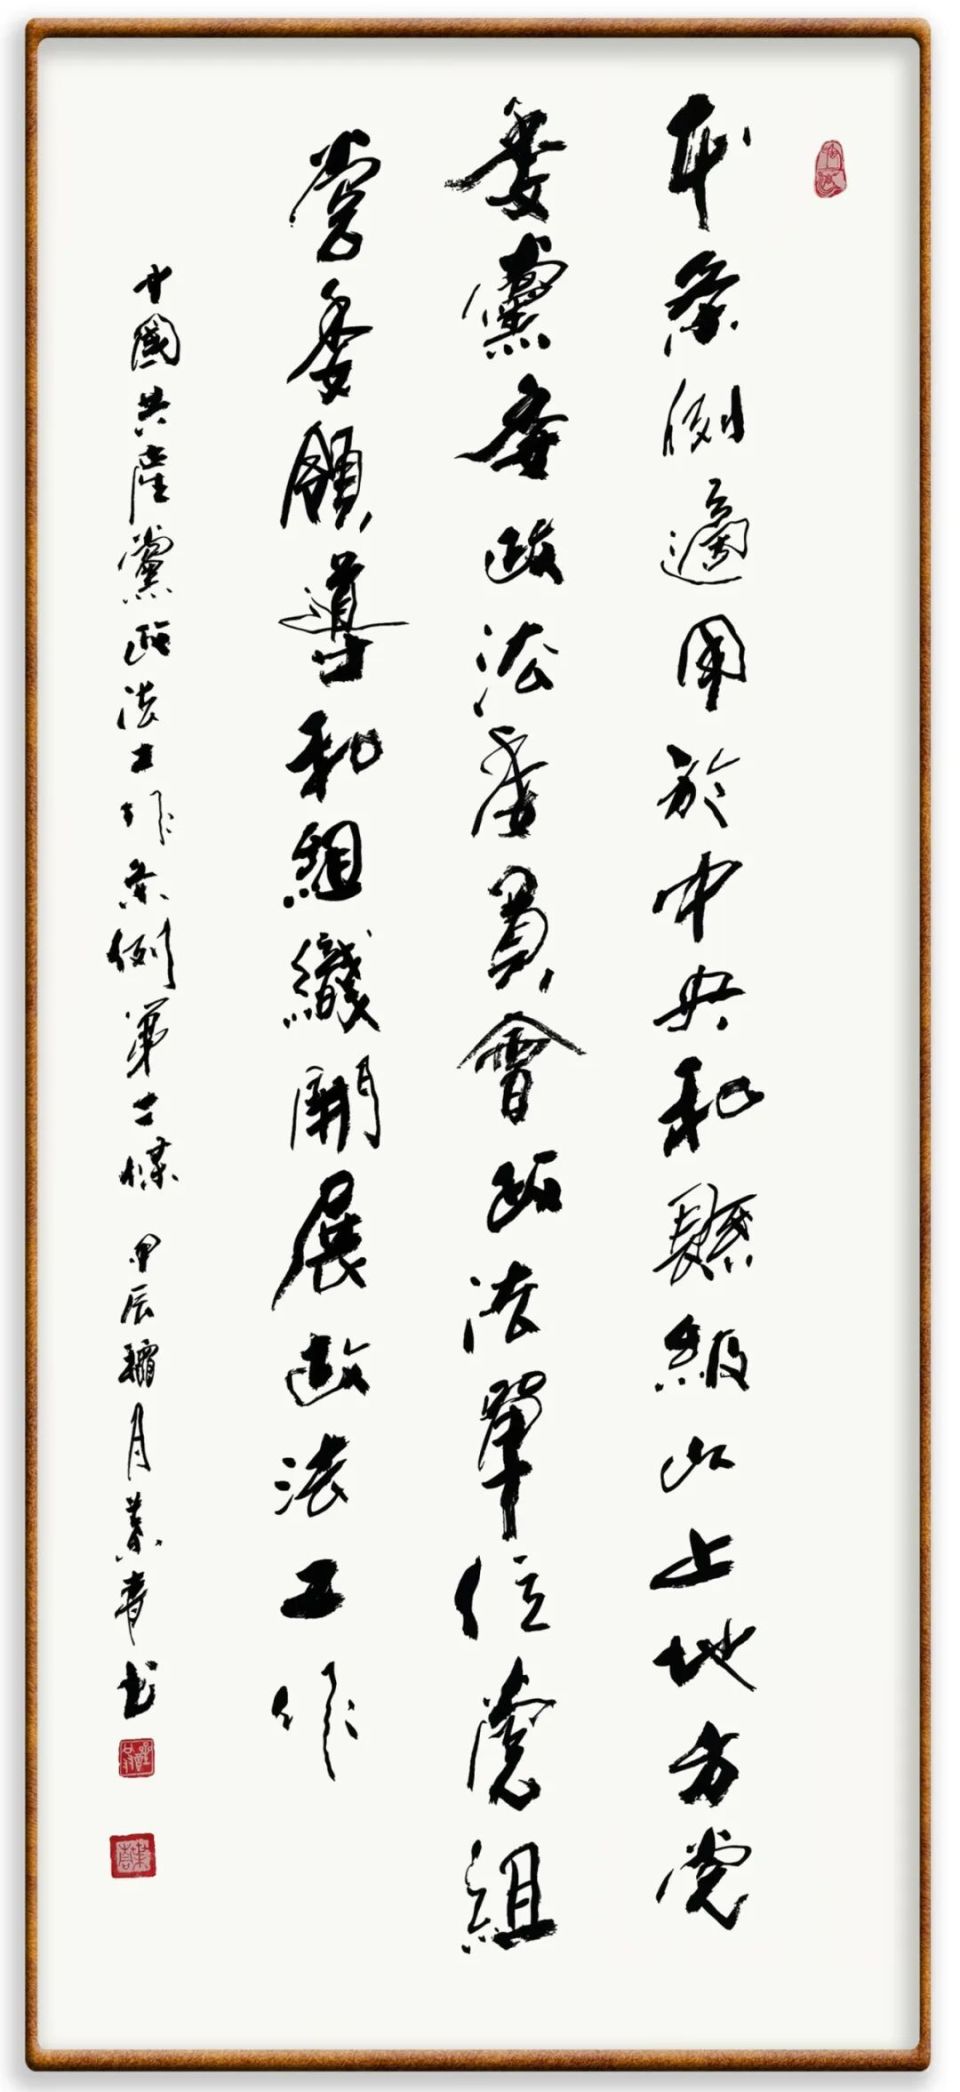 本条例適用於中央和縣級以上地方党
委黨委政法委員會政法單位党組
党委領導和組織開展政法工作
中國共產黨政法工作条例第二條 甲辰 月 青书